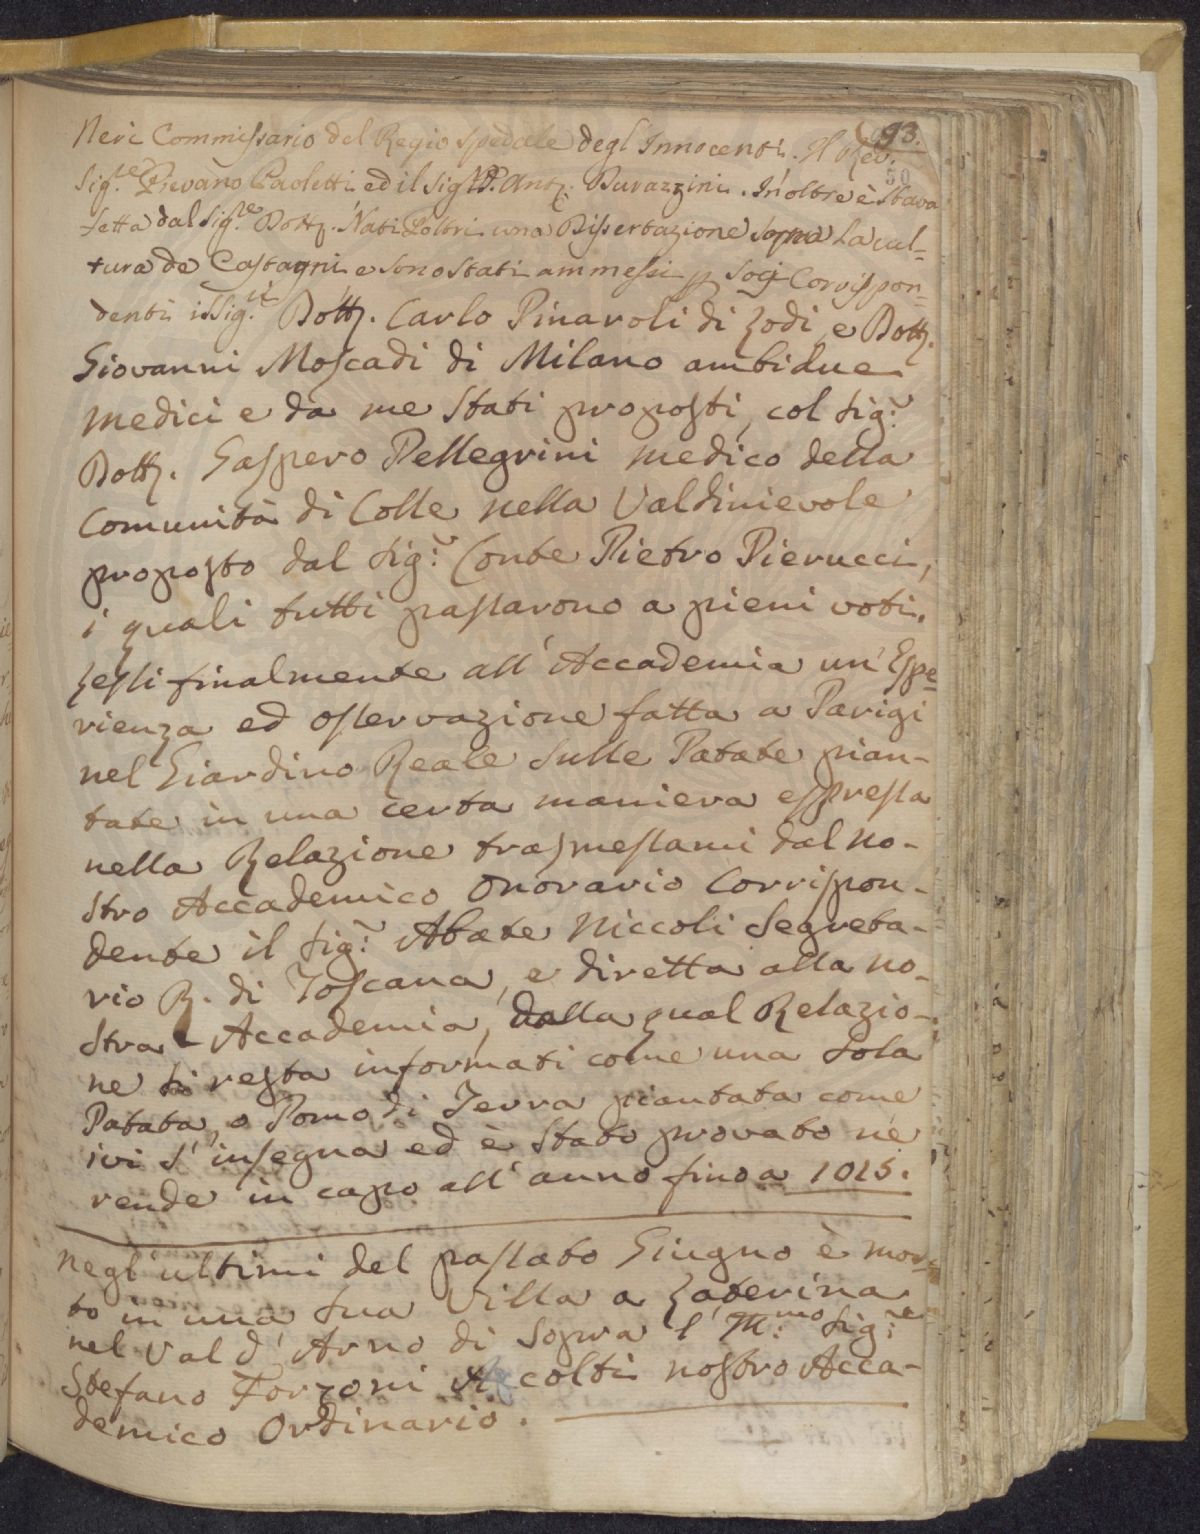 93.
50
Neri Commissario del Regio Spedale degl'Innocenti. Il Rev.
Sig.re Pievano Paoletti ed il Sig.re D. Ant.o Durazzini. In oltre è stata
letta dal Sig.re Dott. Nati Poltri una Dissertazione sopra La cul-
tura de Castagni e sono stati ammessi p Socj Corrispon-
denti i Sig.ri Dott. Carlo Pinaroli di Lodi, e Dott.
Giovanni Moscadi di Milano ambidue
medici e da me stati proposti, col sig.r
Dott. Gaspero Pellegrini medico della
Comunità di Colle nella Valdinievole
proposto dal sig.r Conte Pietro Pierucci,
i quali tutti passarono a pieni voti.
Lessi finalmente all'Accademia un'Espe-
rienza ed osservazione fatta a Parigi
nel Giardino Reale sulle Patate pian-
tate in una certa maniera espressa
nella Relazione trasmessami dal no-
stro Accademico Onorario Corrispon-
dente il sig.r Abate Niccoli Segreta-
rio R. di Toscana, e diretta alla no-
stra Accademia, dalla qual Relazio-
ne si resta informati come una sola
Patata, o Pomo di Terra piantata come
ivi s'insegna ed è stato provato ne
rende in capo all'anno fino a 1015.
Negl'ultimi del passato Giugno è mor-
to in una sua Villa a Laterina
nel Val d'Arno di sopra l'Ill.mo sig.re
Stefano Forzoni Accolti nostro Acca-
demico Ordinario.